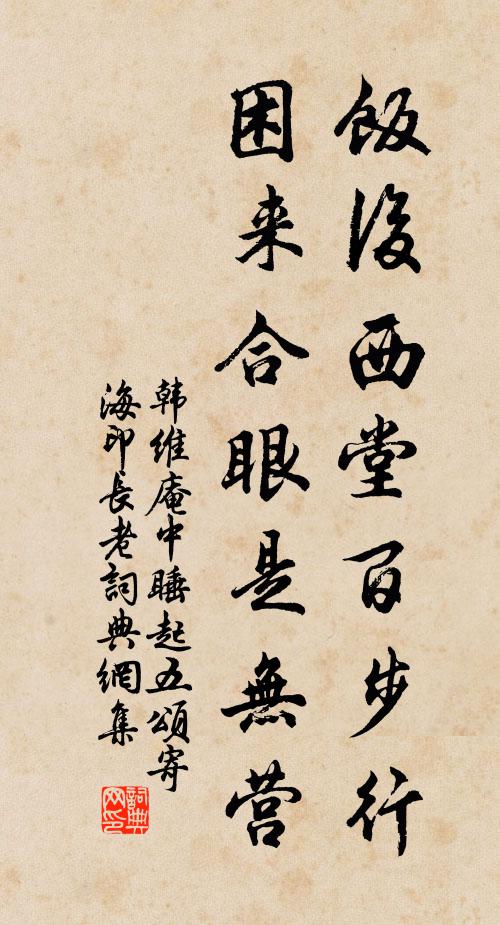 飯後西堂百步行
困来合眼是無营
韩维庵中睡起五頌寄
海印長老詞典網集
詞典
网印